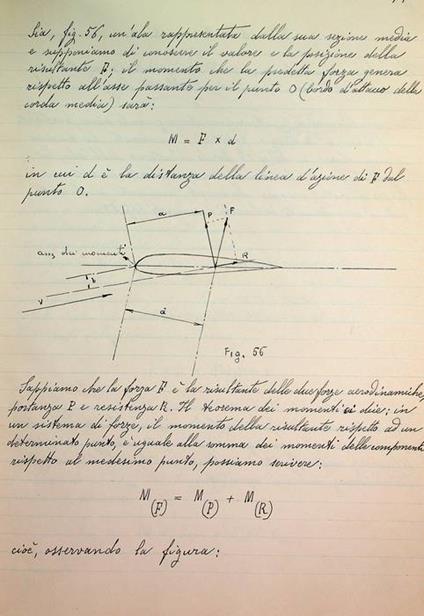 Sia, fig. 56, un'ala rappresentata dalla sua sezione media
e supponiamo di conoscere il valore e la posizione della
risultante F; il momento che la predetta forza genera
rispetto all'asse passante per il punto O (bordo d'attacco della
corda media) sarà:
M = F x d
in cui d è la distanza della linea d'azione di F dal
punto O.
a
P
F
ass dei momenti
R
V
d
Fig. 56
Sappiamo che la forza F è la risultante delle due forze aerodinamiche,
portanza P e resistenza R. Il teorema dei momenti ci dice: in
un sistema di forze, il momento della risultante rispetto ad un
determinato punto, è uguale alla somma dei momenti delle componenti
rispetto al medesimo punto, possiamo scrivere:
M(F) = M(P) + M(R)
cioè, osservando la figura: